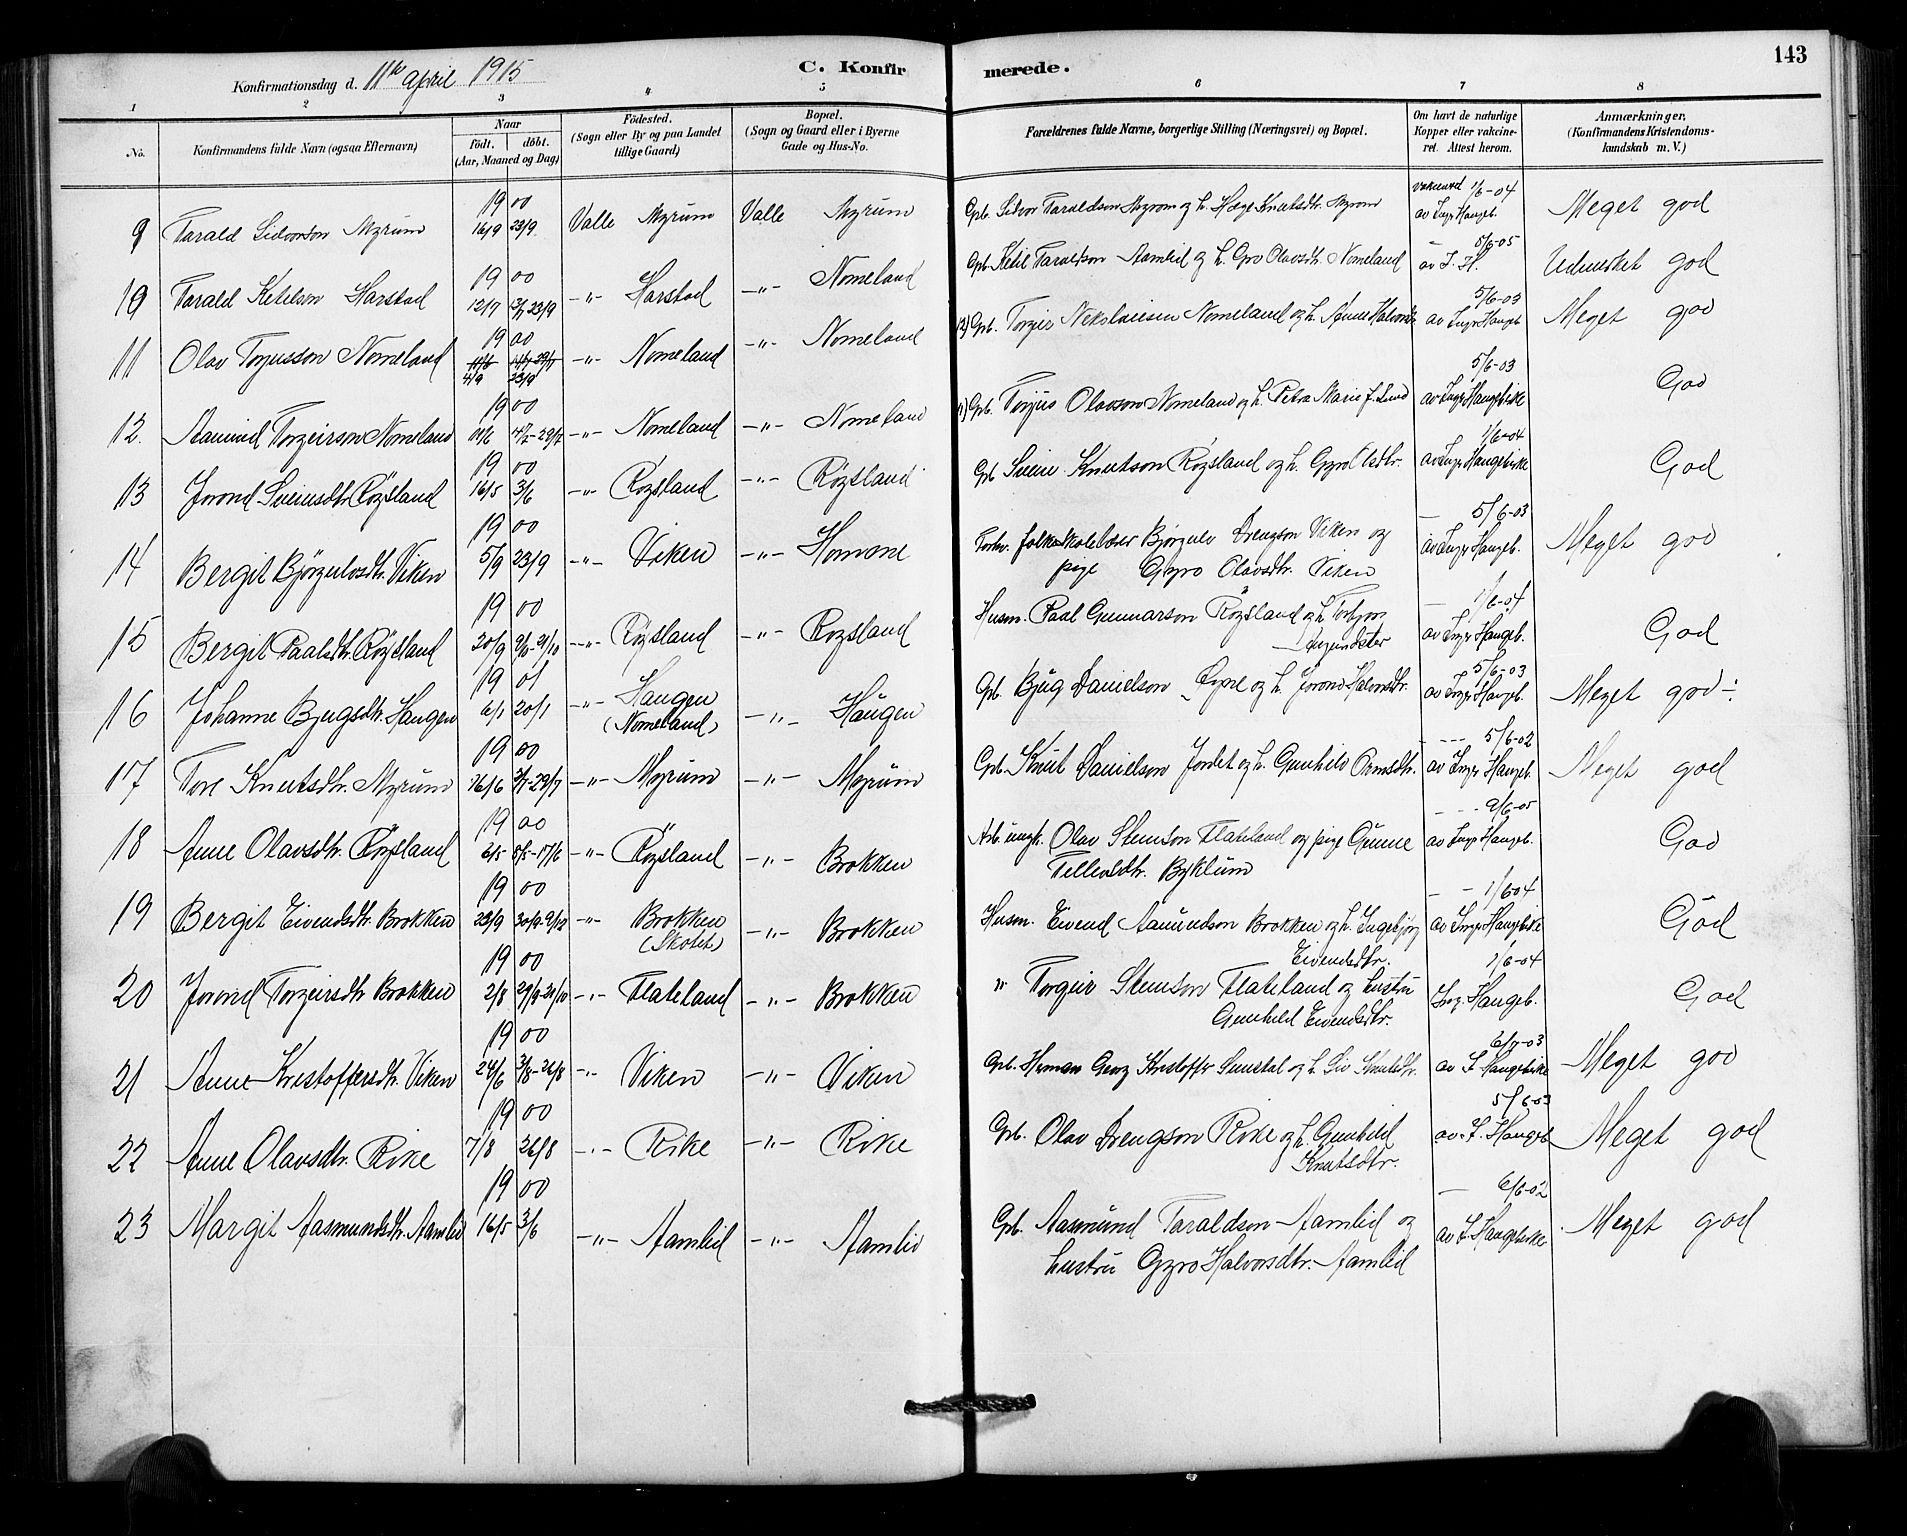 143
Konfirmationsdag d. 11te April 1915
C. Konfirmerede.
1 2 3 4 5 6 7 8
No.
Konfirmandens fulde Navn (ogsaa Efternavn)
Naar født. døbt. (Aar, Maaned og Dag)
Fødested. (Sogn eller By og paa Landet tillige Gaard)
Bopæl. (Sogn og Gaard eller i Byerne Gade og Hus-No.
Forældrenes fulde Navne, borgerlige Stilling (Næringsvei) og Bopæl.
Om havt de naturlige Kopper eller vakcineret. Attest herom.
Anmærkninger, (Konfirmandens Kristendomskundskab m. V.)
9 Tarald Sidvorson Myrum 1900 16/9 23/9 Valle Myrum Valle Myrum Gpb. Sidvor Taraldson Myrom og h. Hæge Knutsdtr. Myrom vakcineret 1/6-04 av Ingr. Haugeb. Meget god
10 Tarald Ketelson Harstad 1900 12/7 23/9 -"- Harstad -"- Nomeland Gpb. Ketil Taraldson Aamlid og h. Gro Olavsdtr. Nomeland 5/6-05 av I. H. Udmerket god
11 Olav Torjusson Nomeland 1900 4/9 23/9 -"- Nomeland -"- Nomeland 12) Gpb. Torgier Nomeland og h. Anne 5/6-03 av Ingr. Haugeb. Meget god
12. Aamund Torgeirson Nomeland 1900 -"- Nomeland -"- Nomeland 11) Gpb. Torjus Olavson Nomeland og h. Petra Marie f. Lund 5/6-03 av Ingr. Haugebirke God
13 Jorond Sveinsdtr. Røysland 1900 16/5 3/6 -"- Røysland -"- Røysland Gpb Svein Knutson Røysland og h. Gyro 1/6-04 av Ingr. Haugebirke God
14 Bergit Bjørgulvsdtr. Viken 1900 5/9 23/9 -"- Viken -"- Homme folkeskolelærer Bjørgulv Drengson Viken og
pige Gyro Olavsdtr. Viken - 5/6-03 av Ingr. Haugeb. Meget god
15 Bergit Paalsdtr. Røysland 1900 20/9 -"- Røysland -"- Røysland Husm. Paal Gunnarson Røysland og h. Torbjør
- 1/6-04 av Ingr. Haugeb. God
16 Johanne Bjugsdtr. Haugen 1901 6/1 20/1 -"- Haugen (Nomeland) -"- Haugen Gpb. Bjug Danielson Øyne og h. Jorond Halvorsdtr. 5/6-03 av Ingr. Haugeb. Meget god ÷
17 Tore Knutsdtr. Myrum 1900 26/6 -29/7 -"- Myrum -"- Myrum Gpb. Knut Danielson Jordet og h. Gunhild Ormsdtr. --- 5/6-02 av Ingr. Haugeb. Meget god
18 Anne Olavsdtr. Røysland 1900 6/5 -17/6 -"- Røysland -"- Brokken Arb. ungk. Olav Stenson Flateland og pige Gunne
Tellevsdtr. Byklum 9/6-05 av Ingr. Haugeb. God
19 Bergit Eivendsdtr. Brokken 1900 23/9 30/9-9/12 -"- Brokken (Skolet) -"- Brokken Husm. Eivend Aamundson Brokken og h. Ingebjørg
Eivendsdtr. - - 1/6 04 av Ingr. Haugbirke God
20 Jorond Torgeirsdtr Brokken 1900 2/8 -"- Flateland -"- Brokken " Torgeir Stenson Flateland og hustru
Gunhild Eivendsdtr. 1/6-04 Ing. Haugeb. God
21 Anne Kristoffersdtr. Viken 1900 24/6 -26/8 -"- Viken -"- Viken Gpb. Herman Georg Kristoffer og h. Liv Knutsdtr. 6/7-03 av I Haugebirke Meget god
22 Anne Olavsdtr. Rike 1900 7/8 26/8 -"- Rike -"- Rike Gpb. Olav Drengson Rike og h. Gunhild
Knutsdtr. 5/6-03 av. I. Haugeb. Meget god
23 Margit Aasmundsdtr. Aamlid 1900 16/5 3/6 -"- Aamlid -"- Aamlid Gpb. Aasmund Taraldson Aamlid og
hustru Gyro Halvorsdtr. Aamlid - 6/6-02 av I Haugebirke Meget god